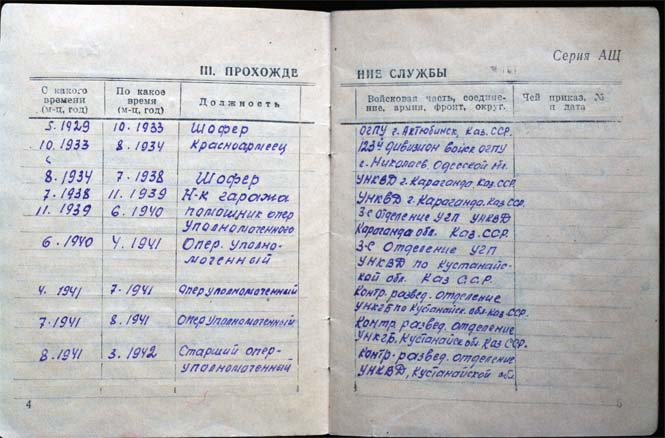 Серия АЩ
III. ПРОХОЖДЕНИЕ СЛУЖБЫ
С какого времени (м-ц, год) | По какое время (м-ц, год) | Должность | Войсковая часть, соединение, армия, фронт, округ. | Чей приказ, № и дата
5.1929 10.1933 Шофер ОГПУ г. Актюбинск, Каз. ССР.
10.1933 8.1934 Красноармеец 123й дивизион войск ОГПУ
г. Николаев, Одесской обл.
8.1934 7.1938 Шофер УНКВД г. Караганда. Каз. ССР.
7.1938 11.1939 Н-к гаража УНКВД г. Караганда. Каз. ССР.
11.1939 6.1940 помощник опер 3-е отделение УГБ УНКВД
Уполномоченного Караганда обл. Каз. ССР.
6.1940 4.1941 Опер. Уполно- 3-е Отделение УГБ
моченный УНКВД по Кустанайс-
кой обл. Каз С.С.Р.
4.1941 7.1941 Оперуполномоченный Контр. развед. отделение
УНКГБ по Кустанайск. обл. Каз ССР.
7.1941 8.1941 Оперуполномоченный Контр. развед. отделение
УНКГБ, Кустанайск обл Каз ССР.
8.1941 3.1942 Старший опер- Контр. развед. отделение
уполномоченный УНКВД, Кустанайской обл.
4 5